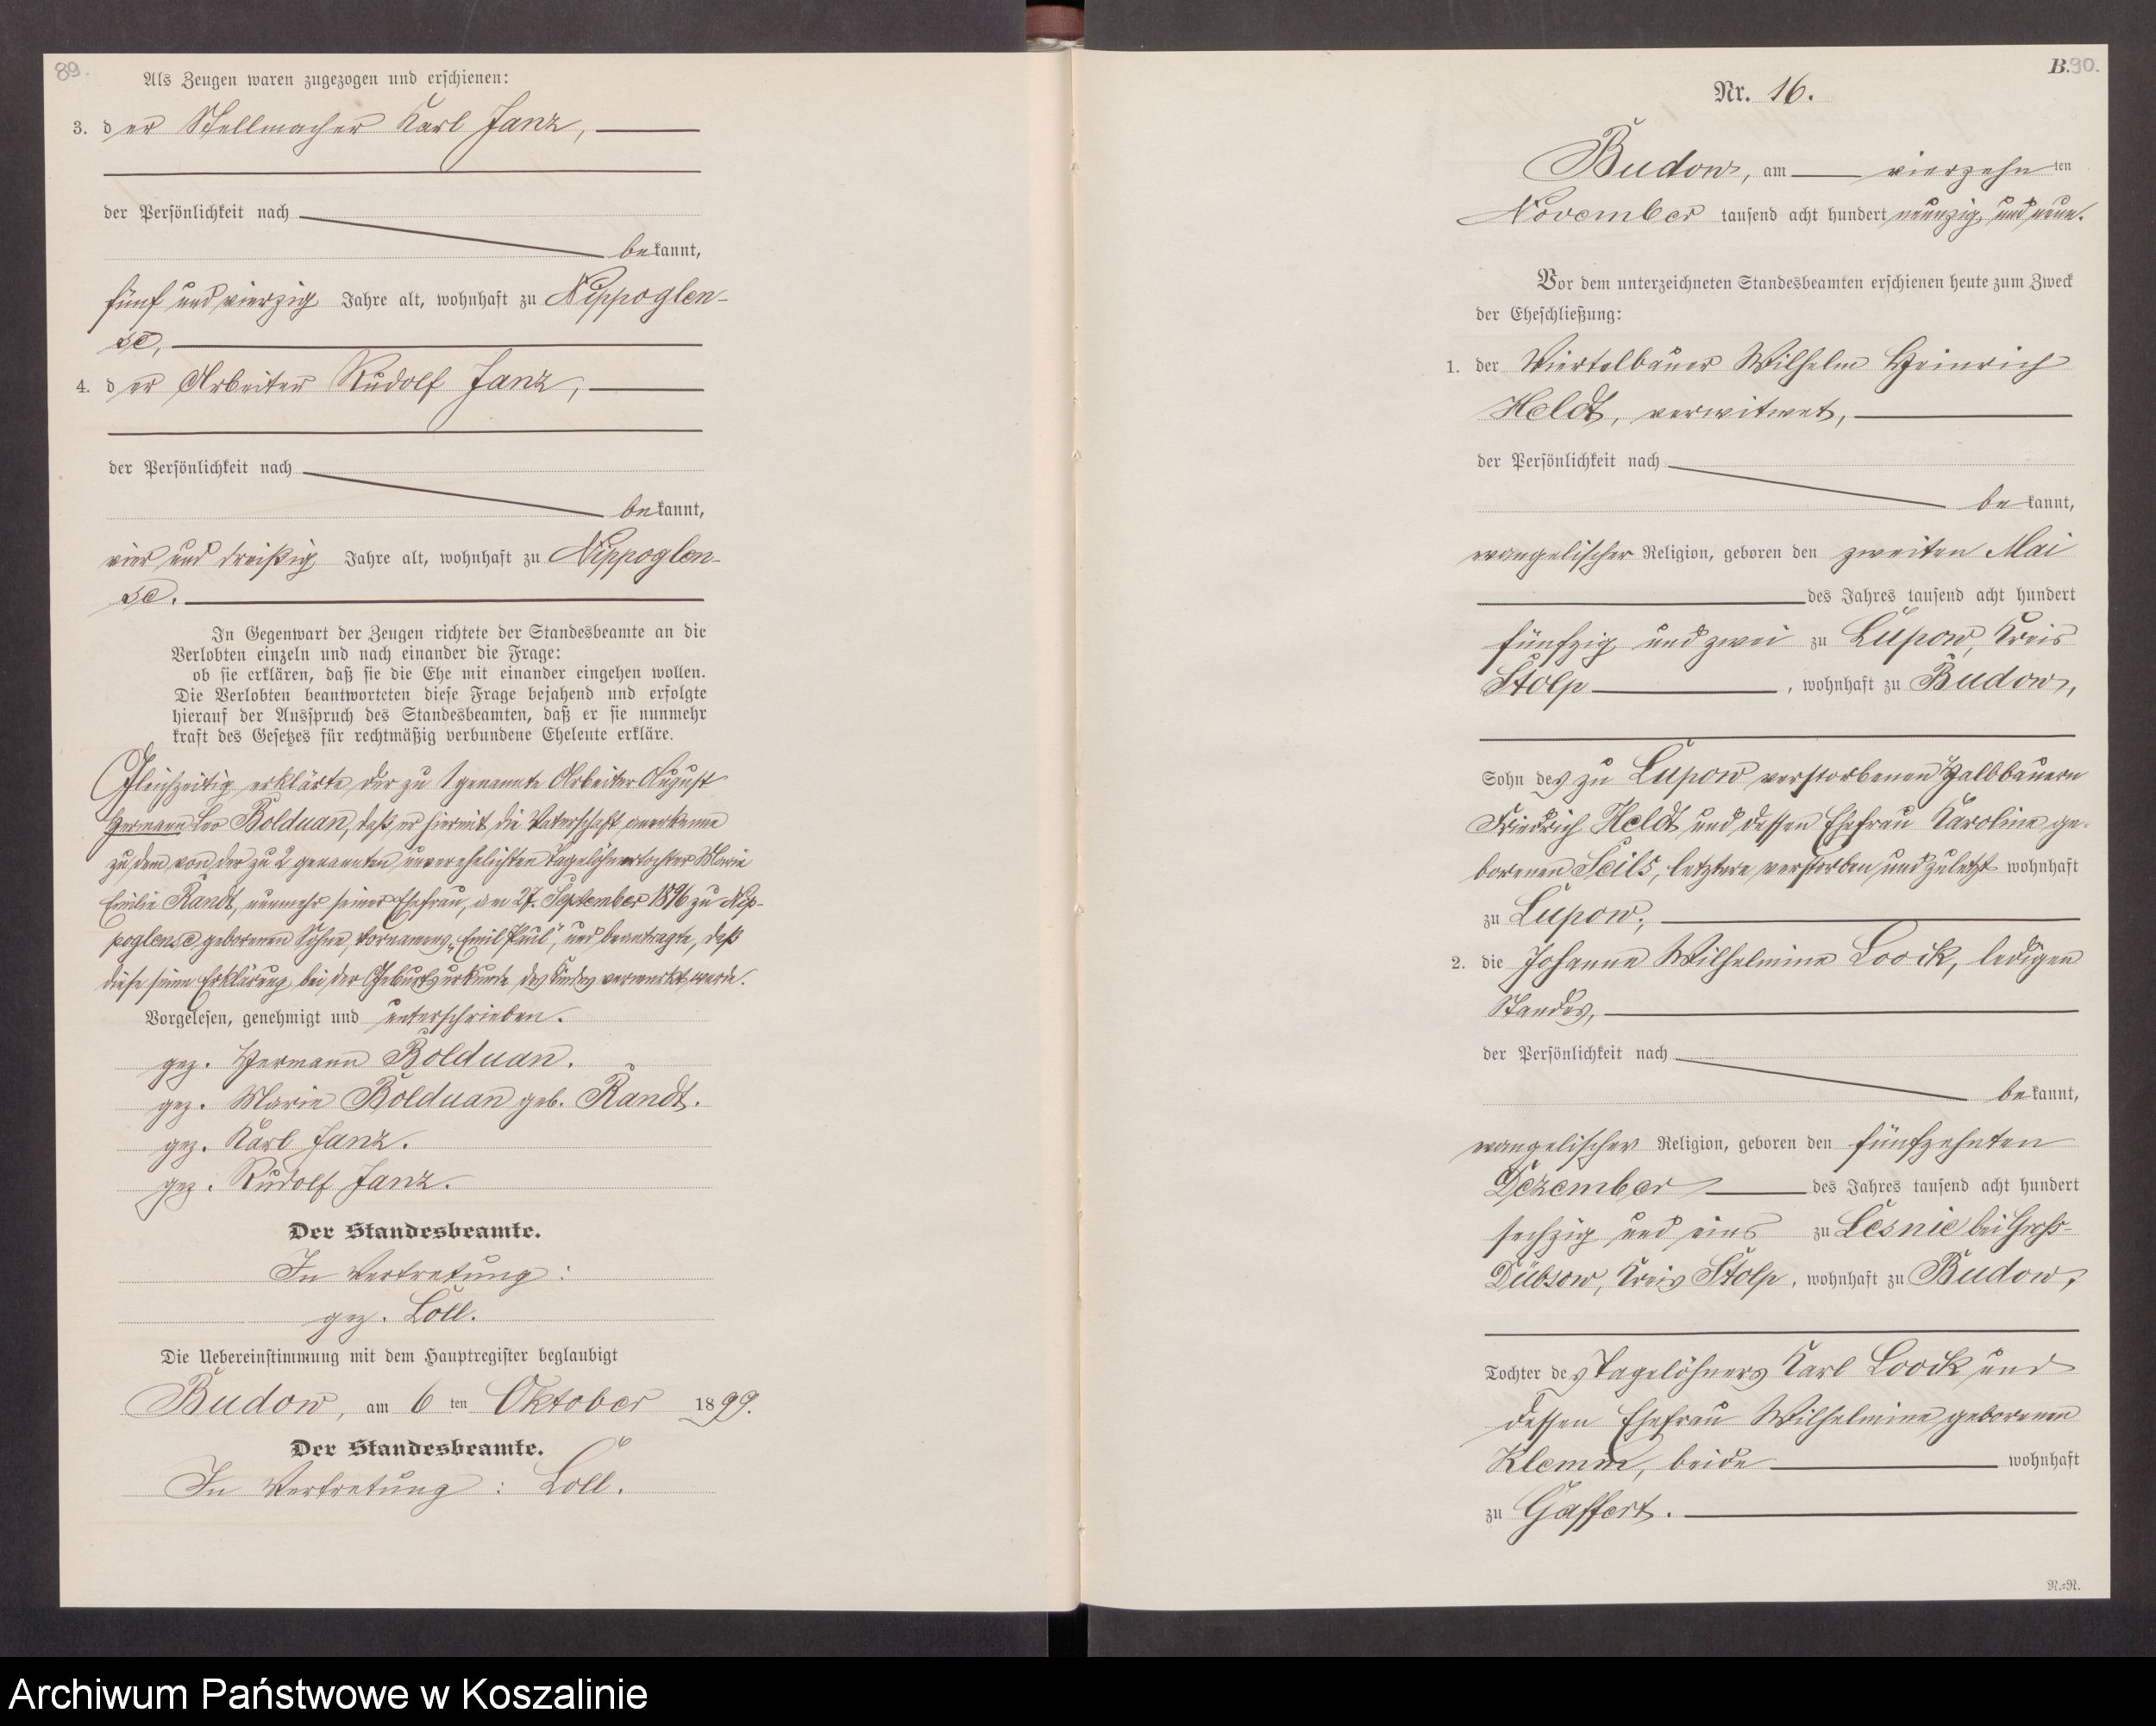 89.
Als Zeugen waren zugezogen und erschienen:
3. der Stellmacher Karl Janz,
der Persönlichkeit nach
bekannt,
fünf und vierzig Jahre alt, wohnhaft zu Nippoglen-
se,
4. der Arbeiter Rudolf Janz,
der Persönlichkeit nach
bekannt,
vier und dreißig Jahre alt, wohnhaft zu Nippoglen-
se.
In Gegenwart der Zeugen richtete der Standesbeamte an die
Verlobten einzeln und nach einander die Frage:
ob sie erklären, daß sie die Ehe mit einander eingehen wollen.
Die Verlobten beantworteten diese Frage bejahend und erfolgte
hierauf der Ausspruch des Standesbeamten, daß er sie nunmehr
kraft des Gesetzes für rechtmäßig verbundene Eheleute erkläre.
Gleichzeitig erklärte der zu 1 genannte Arbeiter August
Hermann Leo Bolduan, daß er hiermit die Vaterschaft anerkenne
zu dem von der zu 2 genannten unverehelichten Tagelöhnertochter Marie
Emilie Randt, nunmehr seiner Ehefrau, am 27. September 1896 zu Nip-
poglense geborenen Sohne, Vornamens „Emil Paul", und beantragte, daß
diese seine Erklärung bei der Geburtsurkunde des Kindes vermerkt werde.
Vorgelesen, genehmigt und unterschrieben.
gez. Hermann Bolduan.
gez. Marie Bolduan geb. Randt.
gez. Karl Janz.
gez. Rudolf Janz.
Der Standesbeamte.
In Vertretung:
gez. Loll.
Die Uebereinstimmung mit dem Hauptregister beglaubigt
Budow, am 6 ten Oktober 1899.
Der Standesbeamte.
In Vertretung: Loll.
B.90.
Nr. 16.
Budow, am vierzehn ten
November tausend acht hundert neunzig und neun.
Vor dem unterzeichneten Standesbeamten erschienen heute zum Zweck
der Eheschließung:
1. der Viertelbauer Wilhelm Heinrich
Heldt, verwitwet,
der Persönlichkeit nach
bekannt,
evangelischer Religion, geboren den zweiten Mai
des Jahres tausend acht hundert
fünfzig und zwei zu Lupow, Kreis
Stolp, wohnhaft zu Budow,
Sohn des zu Lupow verstorbenen Halbbauern
Friedrich Heldt und dessen Ehefrau Karoline ge-
borenen Seils, letztere verstorben und zuletzt wohnhaft
zu Lupow;
2. die Johanne Wilhelmine Loock, ledigen
Standes,
der Persönlichkeit nach
bekannt,
evangelischer Religion, geboren den fünfzehnten
Dezember des Jahres tausend acht hundert
sechzig und eins zu Lesnie bei Groß-
Dübsow, Kreis Stolp, wohnhaft zu Budow,
Tochter des Tagelöhners Karl Loock und
dessen Ehefrau Wilhelmine geborenen
Klemm, beide wohnhaft
zu Gaffert.
N.=R.
Archiwum Państwowe w Koszalinie